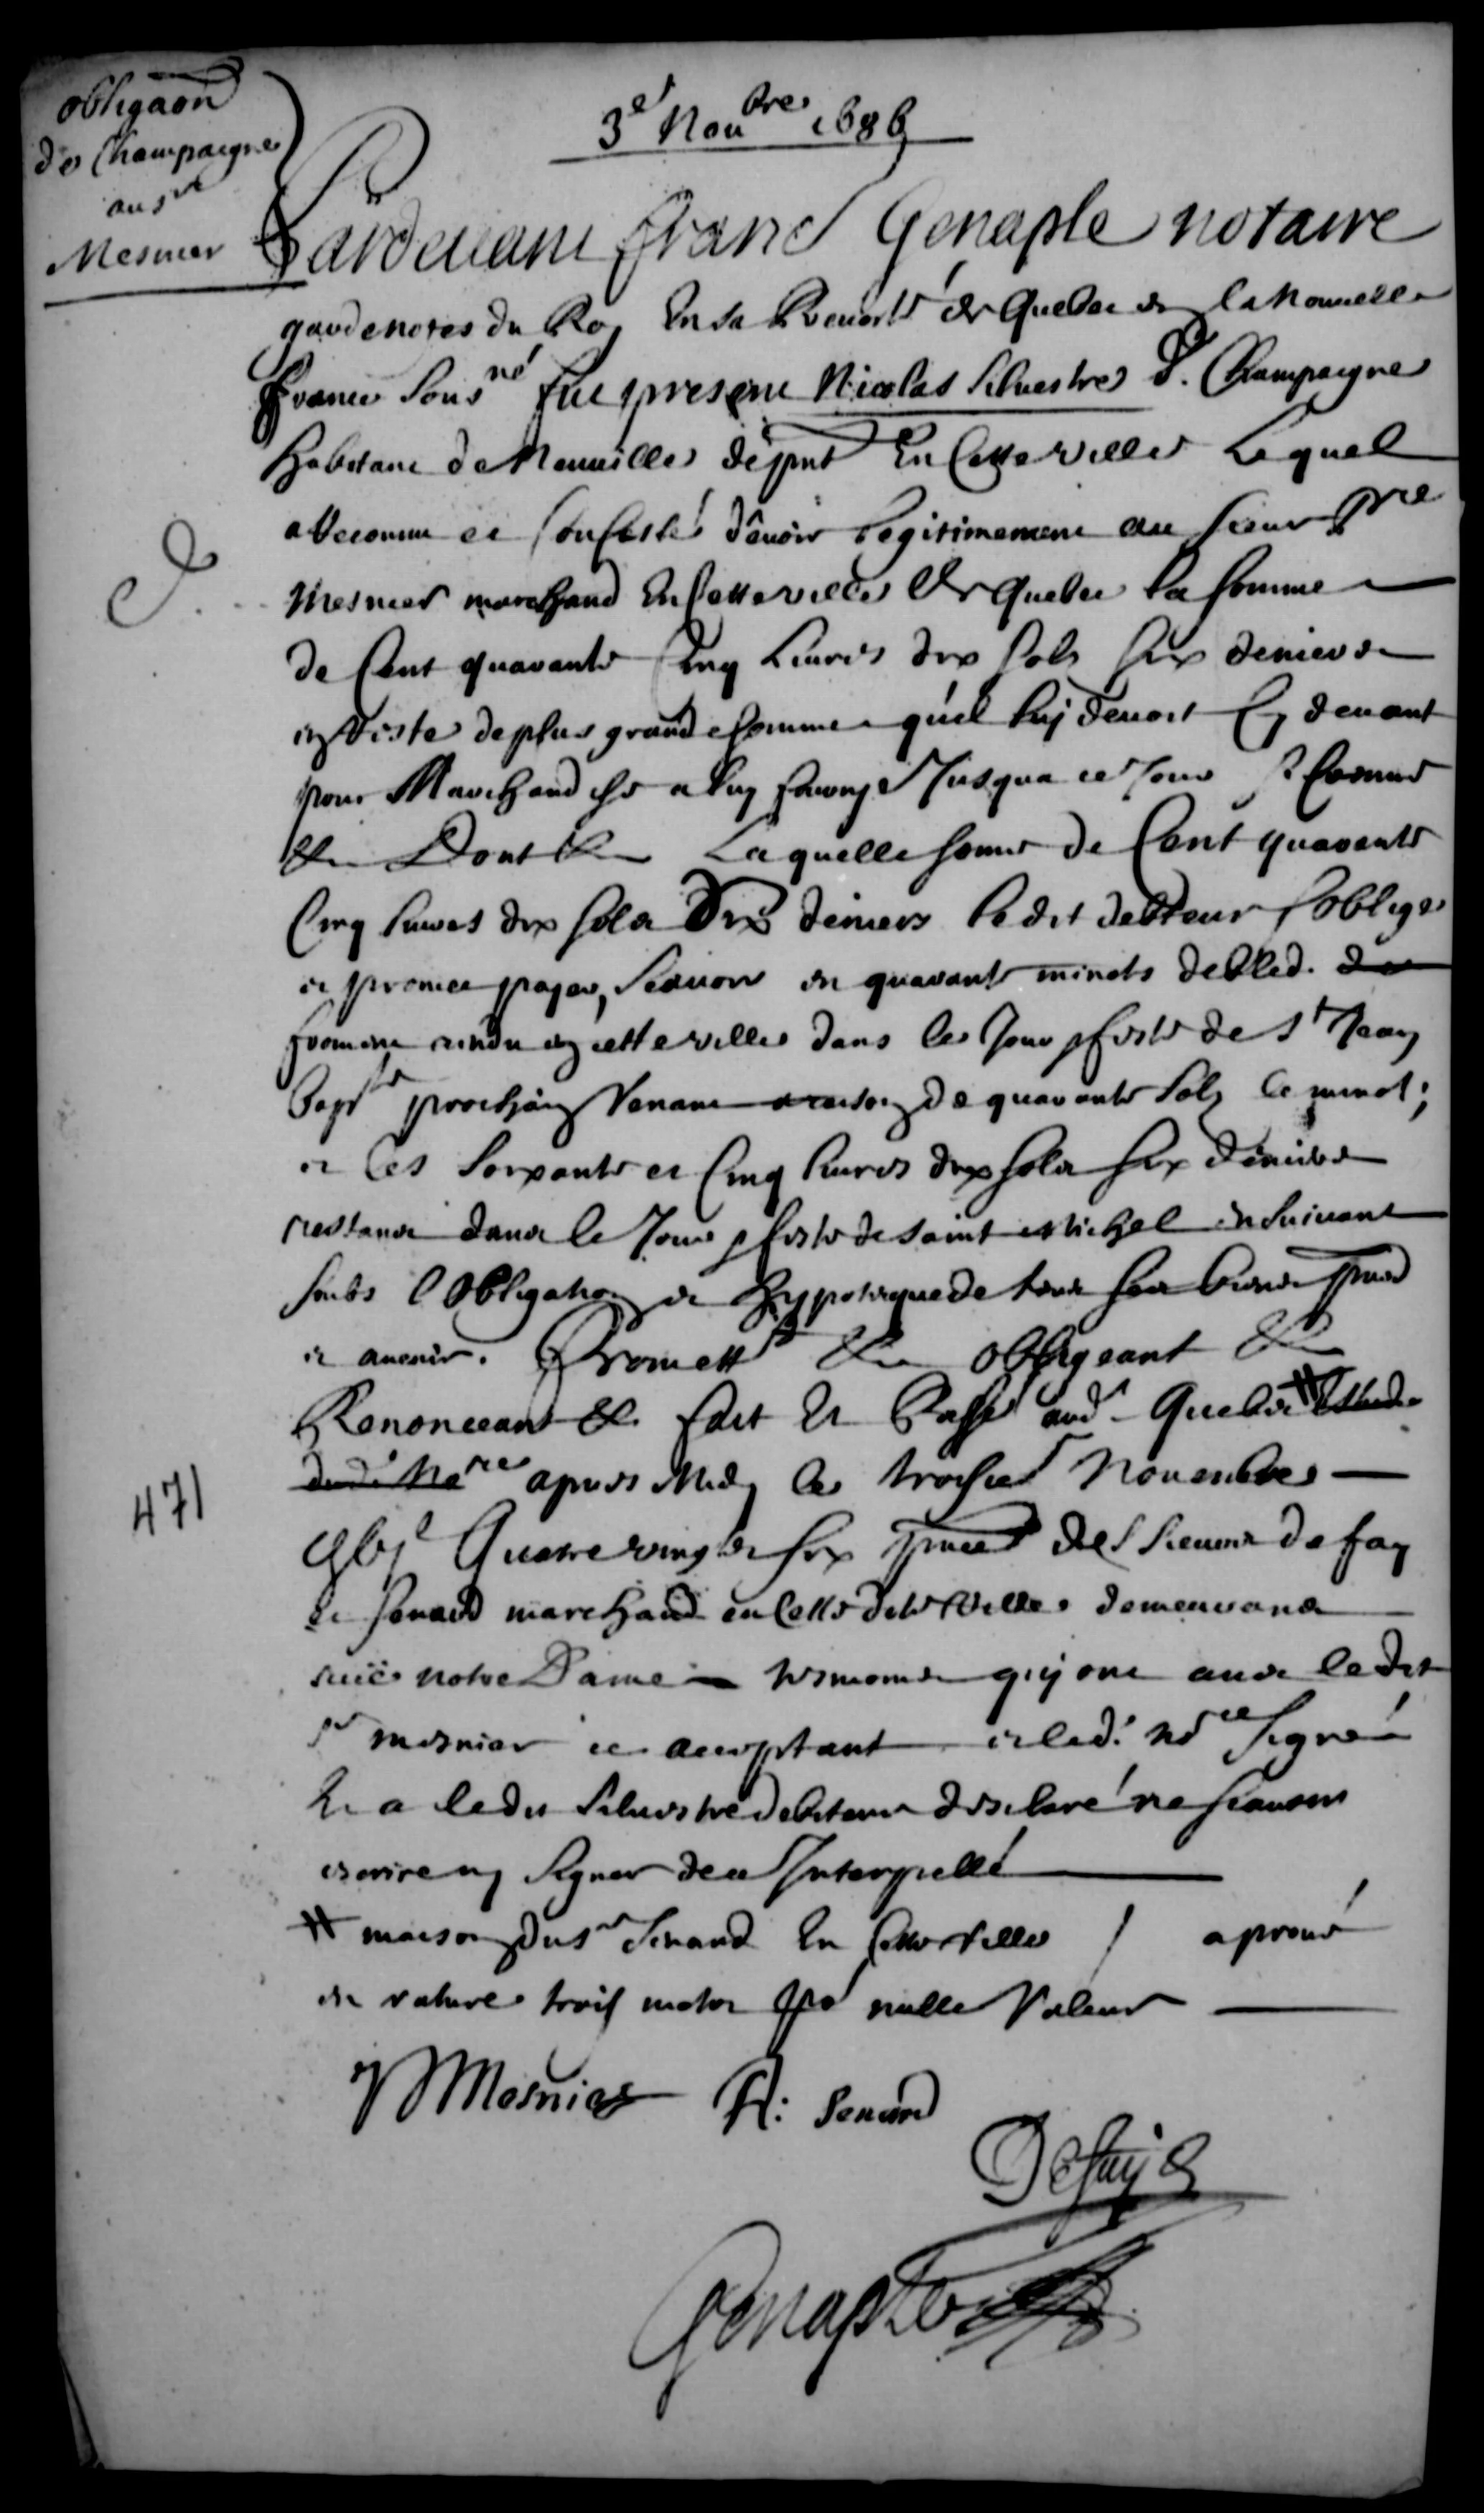 obligaon
de Champaigne
au sr
Mesnier
3e Noubre 1686
Pardeuant franc Genaple notaire
gardenotes du Roy En sa Preuosté de Quebec en la Nouuelle
france sousné fut present Nicolas Siluestre d. Champaigne
habitant de Neuuille de pnt En Cette ville Lequel
a Reconnu et Confessé deuoir legitimement au sieur pre
Mesnier marchand En Cette ville de Quebec la somme
de Cent quarante Cinq Liures dix sols six deniers
de plus grande somme qu'il luy deuoit Cy deuant
pour Marchandise a luy fournye Jusqua ce Jour
&c Dont &c Laquelle somme de Cent quarante
Cinq liures dix sols Six deniers ledit debteur soblige
et promet payer, Scauoir en quarante minots de bled
froment rendu en cette ville dans le Jour & feste de st Jean
Bapte prochain Venant a raison de quarante sols le minot;
et les soixante et Cinq liures dix sols six deniers
restans dans le Jour & feste de saint Michel ensuiuant
soubs lobligation et hypoteque de tous ses biens pnts
et auenir. Promettt &c obligeant &c
Renonceant &c fait Et Passé aud. Quebec #
dud. Nore apres Midy le troisie Nouembre
gbjc Quatre vingts six pnce des sieurs de fay
et senard marchand en Cette dite Ville demeurans
ruë notre Dame tesmoins quy ont auec ledit
sr mesnier ce acceptant et led. nore Signé
Et a ledit Siluestre debiteur desclaré ne scauoir
escrire ny Signer de ce Interpellé
# maison du sr Senard En Cette Ville / aprouué
en rature trois mots de nulle Valeur
Mesnier
Senard
Defaye
Genaple
471